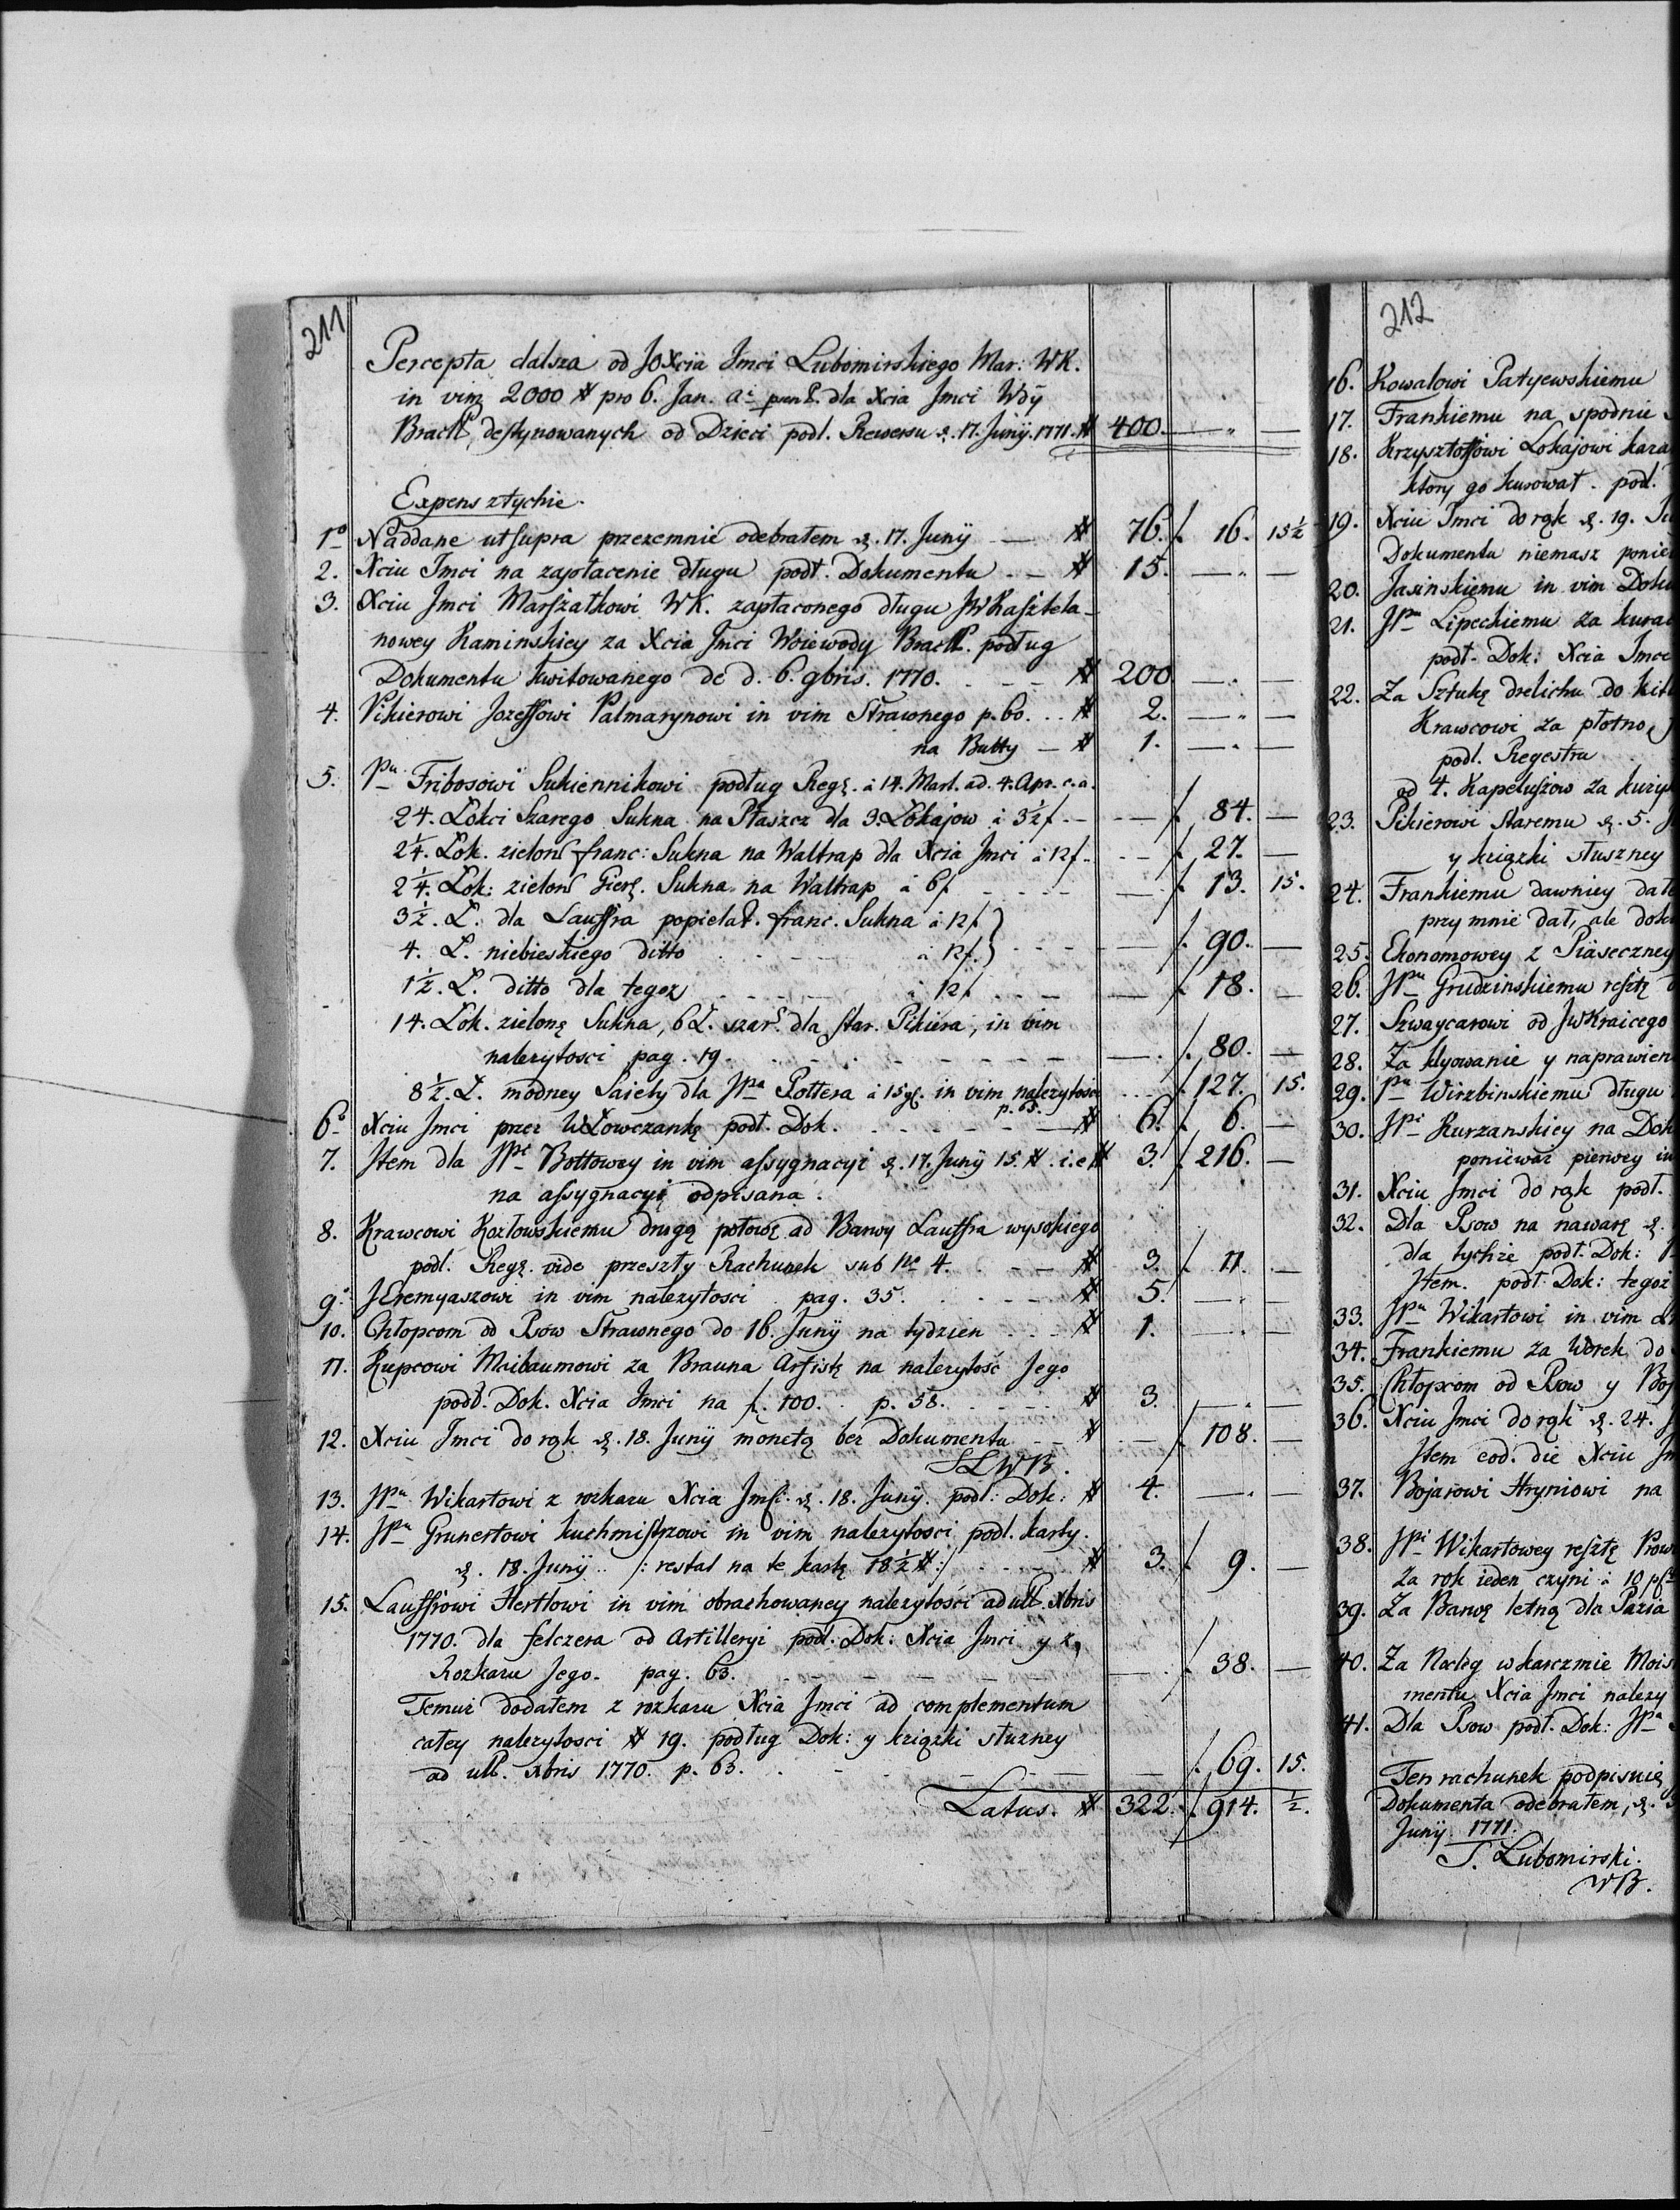 211
Percepta dalsza od JOXcia Jmci Lubomirskiego Mar: WK.
in vim 2000 # pro 6. Jan. a͞i dla Xcia Jmci Wdy
Bracł, destynowanych od Dzieci podł. Rewersu d. 17. Junÿ. 1771. # 400. — " —
Expens ztychże.
1º Naddane ut supra przezemnie odebrałem d. 17. Junÿ — # 76. f. 16. 15½
2. Xciu Jmci na zapłacenie długu podł. Dokumentu — # 15. — " —
3. Xciu Jmci Marszałkowi WK. zapłaconego długu JWKasztela-
nowey Kaminskiey za Xcia Jmci Woiewody Bracł. podług
Dokumentu kwitowanego de d. 6. 9bris. 1770. — # 200 — " —
4. Pikierowi Jozeffowi Palmarynowi in vim Strawnego p. 60. .. # 2. — " —
na Butty — # 1. — " —
5. Pu Fribosowi Sukiennikowi podług Reg. à 14. Mart. ad. 4. Apr. c. a.
24. Łokci Szarego Sukna na Płaszcz dla 3. Lokajow à 3½ f. — f. 84. —
2¼. Łok. zielon franc: Sukna na Waltrap dla Xcia Jmci à 12 f. — f. 27. —
2¼. Łok: zielon Sukna na Waltrap à 6 f. — f. 13. 15.
3½. Ł. dla Lauffra popielat. franc. Sukna à 12 f.
4. Ł. niebieskiego ditto à 12 f. } — f. 90. —
1½. Ł. ditto dla tegoz à 12 f. — f. 18. —
14. Łok. zieloną Sukna, 6 Ł. szar. dla star. Pikiera, in vim
nalezytosci pag. 19. — f. 80. —
8½. Ł. modney Saiety dla JPa Pottera à 15 in vim nalezytosci f. 127. 15.
p. 65.
6º Xciu Jmci przez WŁowczankę podł. Dok. — # 6. f. 6. —
7. Item dla JPi Bottowey in vim assygnacyi d. 17. Junÿ 15. # i.e # 3. f. 216. —
na assygnacyi odpisana.
8. Krawcowi Kozłowskiemu drugą połowę od Barwy Lauffra wysokiego
podł. Reg. vide przeszły Rachunek sub No 4. — # 3. f. 11. —
9. JEremyaszowi in vim nalezytosci pag. 35. — # 5. — " —
10. Chłopcom od Psow Strawnego do 16. Junÿ na tydzien — # 1. — " —
11. Kupcowi Maibaumowi za Brauna Artistę na nalezytość Jego
podł. Dok. Xcia Jmci na f. 100. p. 58. — # 3. — " —
12. Xciu Jmci do rąk d. 18. Junÿ monetą bez Dokumentu — # — f. 108. —
SLWB.
13. JPu Wikartowi z rozkazu Xcia Jmści d. 18. Junÿ. podł: Dok: # 4. — " —
14. JPu Grunertowi kuchmistrzowi in vim nalezytosci podł. karty.
d. 18. Junÿ .. /: restat na te kartę 18½ # :/ — # 3. f. 9. —
15. Lauffrowi Hertlowi in vim obrachowaney nalezytości ad ult. Xbris
1770. dla felczera od Artilleryi podł. Dok: Xcia Jmci y z
Rozkazu Jego. pag. 63. — f. 38. —
Temuż dodałem z rozkazu Xcia Jmci ad complementum
całey nalezytosci # 19. podług Dok: y kziązki słuzney
ad ult. Xbris 1770. p. 63. — f. 69. 15.
Latus. # 322. f. 914. ½.
212
16. Kowalowi Patyewskiemu
17. Frankiemu na spodnie
18. Krzysztoffowi Lokajowi
ktory go kurował. podł.
19. Xciu Jmci do rąk d. 19.
Dokumentu niemasz
20. Jasinskiemu in vim
21. JPu Lipeckiemu za
podł. Dok: Xcia
22. Za Sztukę drelichu do
Krawcowi za płotno,
podł. Regestru
od 4. Kapeluszow za
23. Pikierowi staremu d. 5.
y kziązki słuszney
24. Frankiemu dawniey
przy mnie dał, ale
25. Ekonomowey z Piaseczney
26. JPu Grudzinskiemu resztę
27. Szwaycarowi od JWKraicego
28. Za klyowanie y
29. Pu Wirzbinskiemu długu
30. JPi Kurzanskiey na
poniewaz pierwey
31. Xciu Jmci do rąk podł.
32. Dla Psow na nawarę d.
dla tychże podł. Dok:
Item. podł. Dok: tegoż
33. JPu Wikartowi in vim
34. Frankiemu za Worek do
35. Chłopcom od Psow y
36. Xciu Jmci do rąk d. 24.
Item eod. die Xciu
37. Bojarowi Hryniowi na
38. JPi Wikartowey resztę
Za rok ieden czyni à 10
39. Za Barwę letną dla Pazia
40. Za Nocleg w karczmie
mentu Xcia Jmci
41. Dla Psow podł. Dok: JPa
Ten rachunek podpisuię
Dokumenta odebrałem, d.
Junÿ 1771.
S. Lubomirski.
WB.